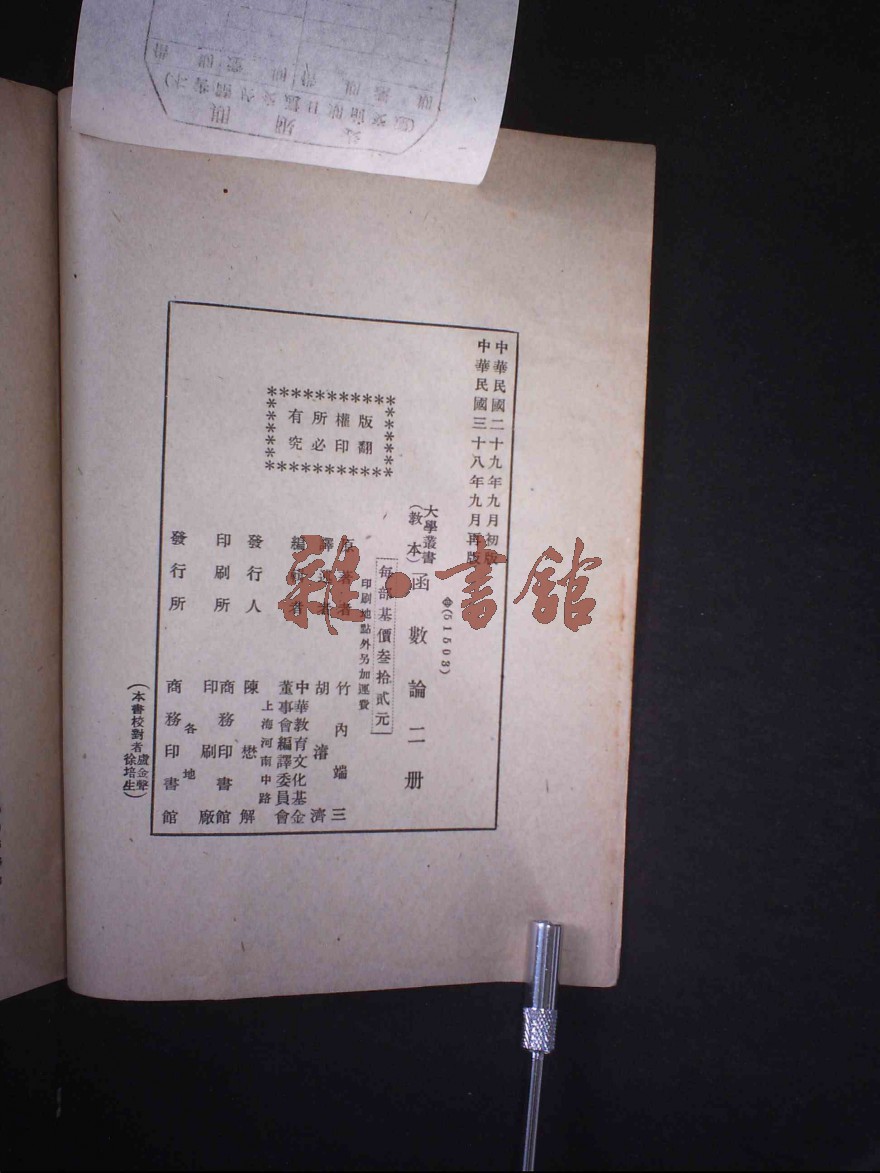 中華民國二十九年九月初版
中華民國三十八年九月再版
(51503)
大學叢書
(教本)
函數論二册
每部基價叁拾貳元
印刷地點外另加運費
版權所有
翻印必究
原著者 竹內端三
譯述者 胡濬濟
編輯者 中華教育文化基金
董事會編譯委員會
上海河南中路
發行人 陳懋解
印刷所 商務印書館
印刷廠
各地
發行所 商務印書館
(本書校對者 盧金聲
徐培生)
雜·書館